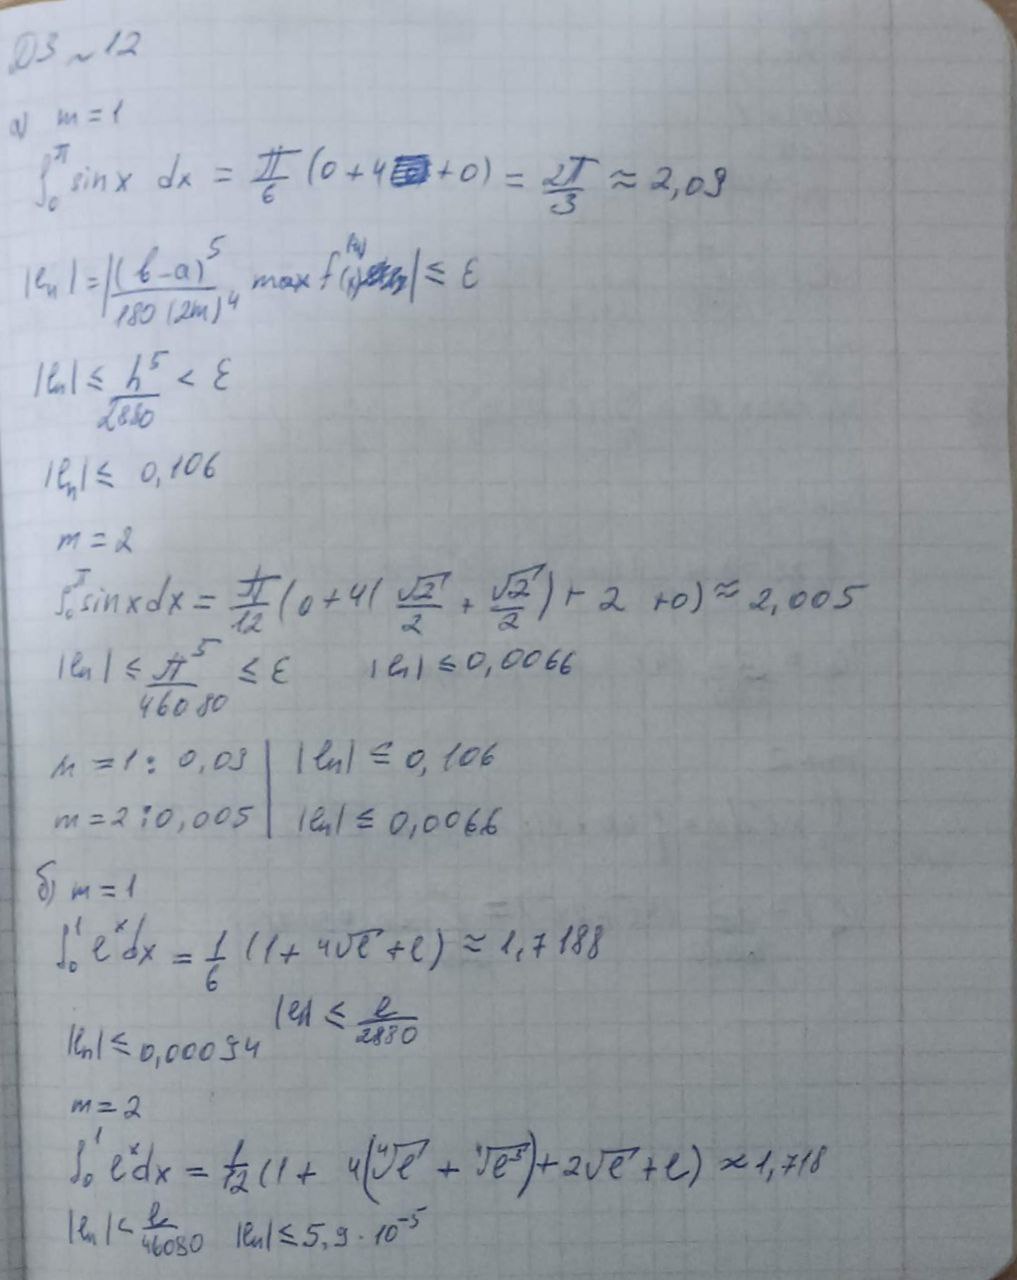 ДЗ ~ 12
а) m = 1
∫₀^π sinx dx = π/6 (0 + 4 + 0) = 2π/3 ≈ 2,09
|ln| = |(b-a)^5 / 180 (2m)^4 max f^(IV)(x)| ≤ ε
|ln| ≤ h^5/2880 < ε
|ln| ≤ 0,106
m = 2
∫₀^π sinxdx = π/12 (0 + 4(√2/2 + √2/2) + 2 + 0) ≈ 2,005
|ln| ≤ π^5/46080 ≤ ε |ln| ≤ 0,0066
m = 1: 0,09 | |ln| ≤ 0,106
m = 2: 0,005 | |ln| ≤ 0,0066
б) m = 1
∫₀^1 e^x dx = 1/6 (1 + 4√e + e) ≈ 1,7188
|ln| ≤ e/2880
|ln| ≤ 0,00094
m = 2
∫₀^1 e^x dx = 1/12 (1 + 4(⁴√e + ⁴√e³) + 2√e + e) ≈ 1,718
|ln| < e/46080 |ln| ≤ 5,9 · 10^-5